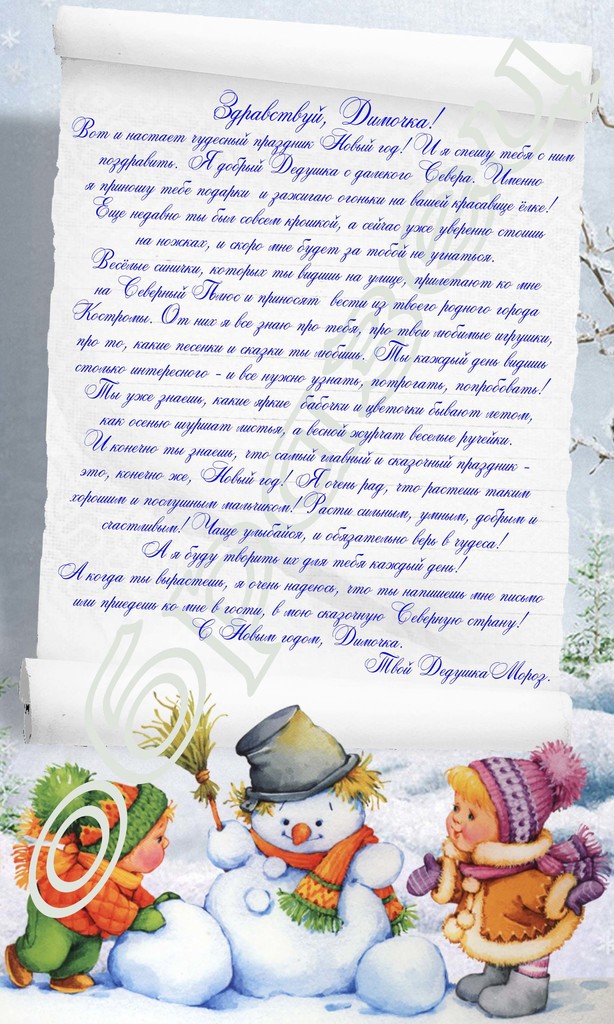 Здравствуй, Димочка!
Вот и настает чудесный праздник Новый год! И я спешу тебя с ним
поздравить. Я добрый Дедушка с далекого Севера. Именно
я приношу тебе подарки и зажигаю огоньки на вашей красавице ёлке!
Еще недавно ты был совсем крошкой, а сейчас уже уверенно стоишь
на ножках, и скоро мне будет за тобой не угнаться.
Весёлые синички, которых ты видишь на улице, прилетают ко мне
на Северный Плюс и приносят вести из твоего родного города
Костромы. От них я все знаю про тебя, про твои любимые игрушки,
про то, какие песенки и сказки ты любишь. Ты каждый день видишь
столько интересного - и все нужно узнать, потрогать, попробовать!
Ты уже знаешь, какие яркие бабочки и цветочки бывают летом,
как осенью шуршат листья, а весной журчат веселые ручейки.
И конечно ты знаешь, что самый главный и сказочный праздник -
это, конечно же, Новый год! Я очень рад, что растешь таким
хорошим и послушным мальчиком! Расти сильным, умным, добрым и
счастливым! Чаще улыбайся, и обязательно верь в чудеса!
А я буду творить их для тебя каждый день!
А когда ты вырастешь, я очень надеюсь, что ты напишешь мне письмо
или приедешь ко мне в гости, в мою сказочную Северную страну!
С Новым годом, Димочка.
Твой Дедушка Мороз.